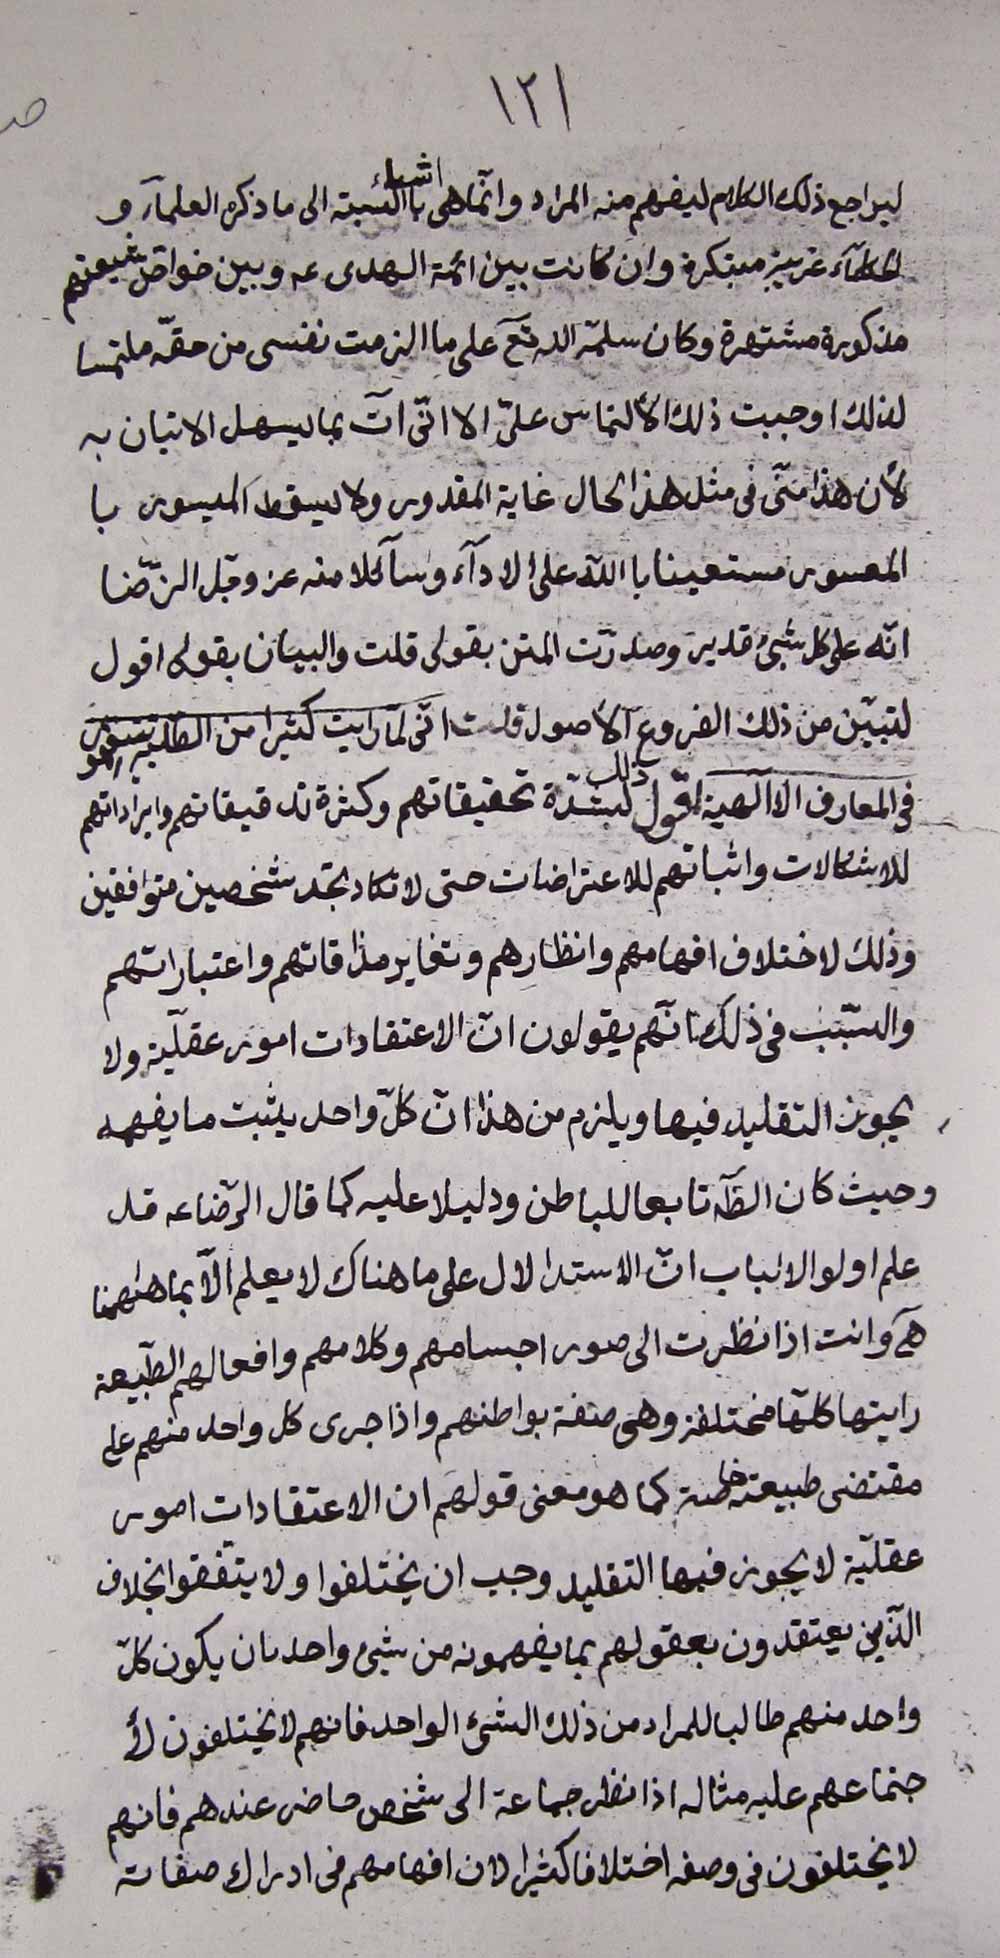 ١٢١
ليراجع ذلك الكلام ليفهم منه المراد وانّما هى اشياء بالنسبة الى ما ذكره العلمآء و
الحكمآء غريبة مبتكرة وان كانت بين ائمة الهدى عه وبين خواص شيعتهم
مذكورة مشتهرة وكان سلمه الله تع على ما الزمت نفسى من حقّه ملتمسا
لذلك اوجبت ذلك الألتماس علىّ الا انّى اٰت بما يسهل الاتيان به
لأن هذا منّى فى مثل هذا الحال غاية المقدور ولا يسقط الميسور با
المعسور مستعينا با الله على الادآء وسآئلا منه عز وجل الرّضا
انّه على كل شئ قدير وصدّرت المتن بقولى قلت والبيان بقولى اقول
لتبيّن من ذلك الفروع الأصول قلت انّى لمّا رايت كثيرا من الطلبة يتعمقو
فى المعارف الاآلهية اقول ذلك لشدّة تحقيقاتهم وكثرة تدقيقاتهم وايراداتهم
للاشكالات واثباتهم للاعتراضات حتى لا تكاد تجد شخصين متوافقين
وذلك لاختلاف افهامهم وانظارهم وتغاير مذاقاتهم واعتباراتهم
والسّبب فى ذلك انّهم يقولون انّ الاعتقادات امور عقلّية ولا
يجوز التقليد فيها ويلزم من هذا انّ كلّ واحد يثبت ما يفهمه
وحيث كان الظّه تابعا للباطن ودليلا عليه كما قال الرّضا عه قد
علم اولوا الالباب انّ الاستدلال على ما هناك لا يعلم الّا بما هٰهنا
هآ وانت اذا نظرت الى صور اجسامهم وكلامهم وافعالهم الطّبيعة
رايتها كلّها مختلفة وهى صفة بواطنهم واذا جرى كل واحد منهم على
مقتضى طبيعته خاصة كما هو معنى قولهم ان الاعتقادات امور
عقليّة لا يجوز فيها التقليد وجب ان يختلفوا ولا يتّفقوا بخلاف
الّذين يعتقدون بعقولهم بما يفهمونه من شئ واحد بان يكون كلّ
واحد منهم طالب للمراد من ذلك الشئ الواحد فانهم لا يختلفون لأ
جتماعهم عليه مثاله اذا نظر جماعة الى شخص حاضر عندهم فانهم
لا يختلفون فى وصفه اختلافا كثيرا لان افهامهم فى ادراك صفاته